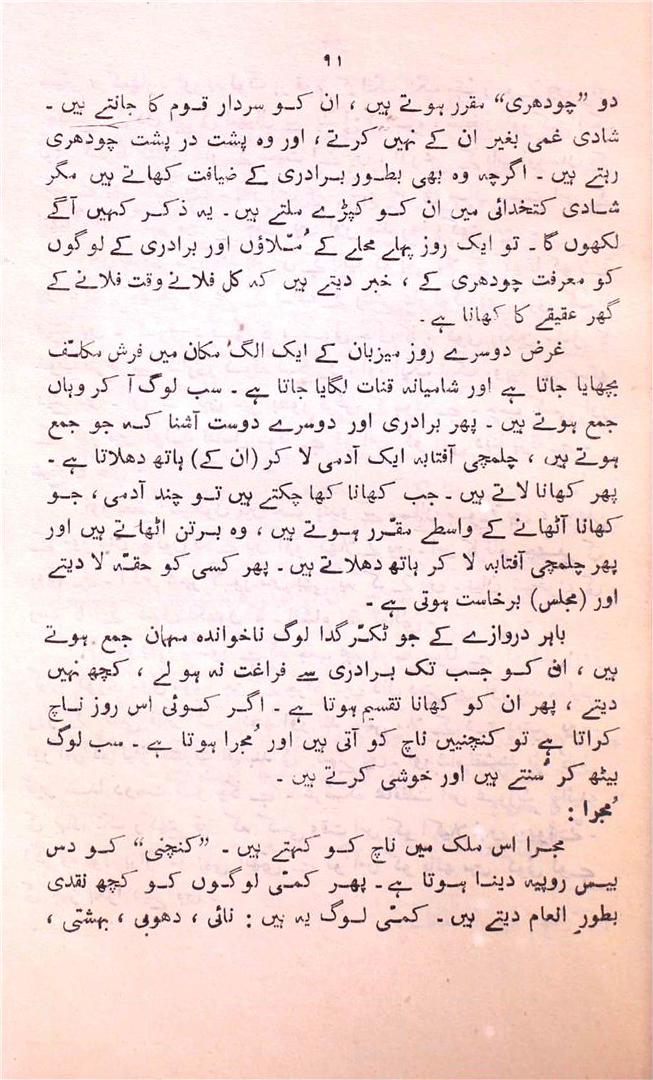 ۹۱
دو ”چودھری“ مقرر ہوتے ہیں ، ان کو سردار قوم کا جانتے ہیں ۔
شادی غمی بغیر ان کے نہیں کرتے ، اور وہ پشت در پشت چودھری
رہتے ہیں ۔ اگرچہ وہ بھی بطور برادری کے ضیافت کھاتے ہیں مگر
شادی کتخدائی میں ان کو کپڑے ملتے ہیں ۔ یہ ذکر کہیں آگے
لکھوں گا ۔ تو ایک روز پہلے محلے کے مُلّاؤں اور برادری کے لوگوں
کو معرفت چودھری کے ، خبر دیتے ہیں کہ کل فلانے وقت فلانے کے
گھر عقیقے کا کھانا ہے ۔
غرض دوسرے روز میزبان کے ایک الگ مکان میں فرش مکلّف
بچھایا جاتا ہے اور شامیانہ قنات لگایا جاتا ہے ۔ سب لوگ آ کر وہاں
جمع ہوتے ہیں ۔ پھر برادری اور دوسرے دوست آشنا کہ جو جمع
ہوتے ہیں ، چلمچی آفتابہ ایک آدمی لا کر (ان کے) ہاتھ دھلاتا ہے ۔
پھر کھانا لاتے ہیں ۔ جب کھانا کھا چکتے ہیں تو چند آدمی ، جو
کھانا اُٹھانے کے واسطے مقرّر ہوتے ہیں ، وہ برتن اٹھاتے ہیں اور
پھر چلمچی آفتابہ لا کر ہاتھ دھلاتے ہیں ۔ پھر کسی کو حقّہ لا دیتے
اور (مجلس) برخاست ہوتی ہے ۔
باہر دروازے کے جو ٹکّر گدا لوگ ناخواندہ مہمان جمع ہوتے
ہیں ، ان کو جب تک برادری سے فراغت نہ ہو لے ، کچھ نہیں
دیتے ، پھر ان کو کھانا تقسیم ہوتا ہے ۔ اگر کوئی اس روز ناچ
کراتا ہے تو کنچنییں ناچ کو آتی ہیں اور مُجرا ہوتا ہے ۔ سب لوگ
بیٹھ کر سُنتے ہیں اور خوشی کرتے ہیں ۔
مُجرا :
مجرا اس ملک میں ناچ کو کہتے ہیں ۔ ”کنچنی“ کو دس
بیس روپیہ دینا ہوتا ہے ۔ پھر کمّی لوگوں کو کچھ نقدی
بطورِ انعام دیتے ہیں ۔ کمّی لوگ یہ ہیں : نائی ، دھوبی ، بہشتی ،